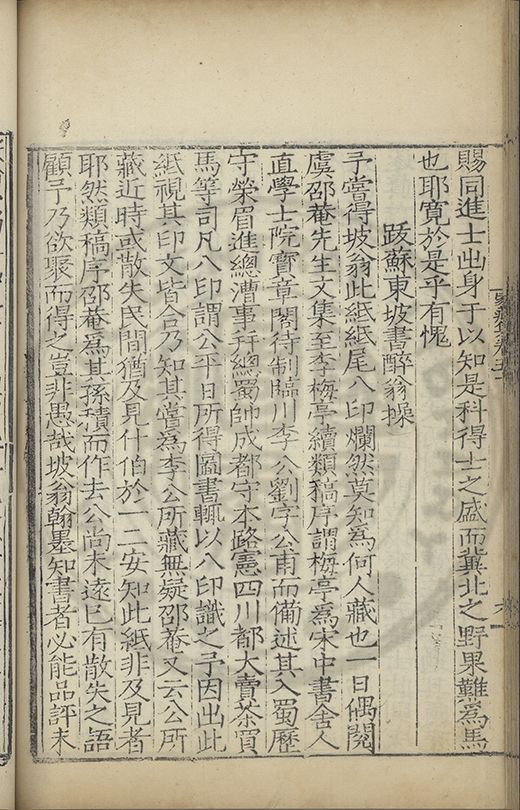 賜同進士出身于以知是科得士之盛而冀北之野果難為馬
也耶寬於是乎有愧
跋蘇東坡書醉翁操
予嘗得坡翁此紙紙尾八印爛然莫知為何人藏也一日偶閱
虞邵菴先生文集至李梅亭續類稿序謂梅亭為宋中書舍人
直學士院寶章閣待制臨川李公劉字公甫而備述其入蜀歷
守榮眉進總漕事幷總蜀帥成都守本路憲四川都大賣茶買
馬等司凡八印謂公平日所得圖書輒以八印識之予因出此
紙視其印文皆合乃知其嘗為李公所藏無疑邵菴又云公所
藏近時或散失民間猶及見什伯於一二安知此紙非及見者
耶然類稿序邵菴為其孫積而作去公尚未遠已有散失之語
顧予乃欲聚而得之豈非愚哉坡翁翰墨知書者必能品評未